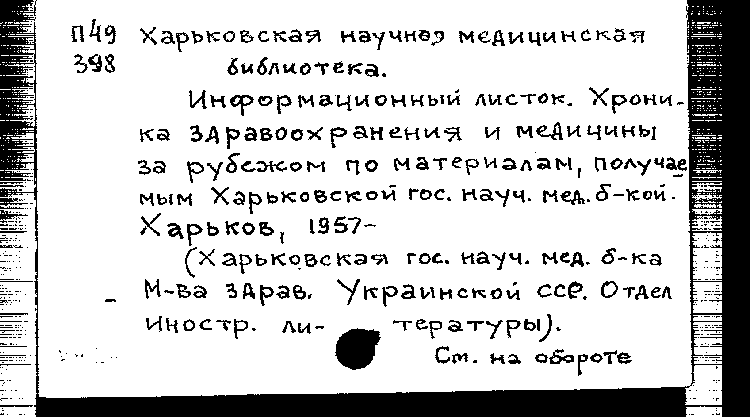 П49 Харьковская научная медицинская
398 библиотека.
Информационный листок. Хрони-
ка здравоохранения и медицины
за рубежом по материалам, получае
мым Харьковской гос. науч. мед. б-кой.
Харьков, 1957-
(Харьковская гос. науч. мед. б-ка
М-ва здрав. Украинской ССР. Отдел
иностр. ли- тературы).
См. на обороте